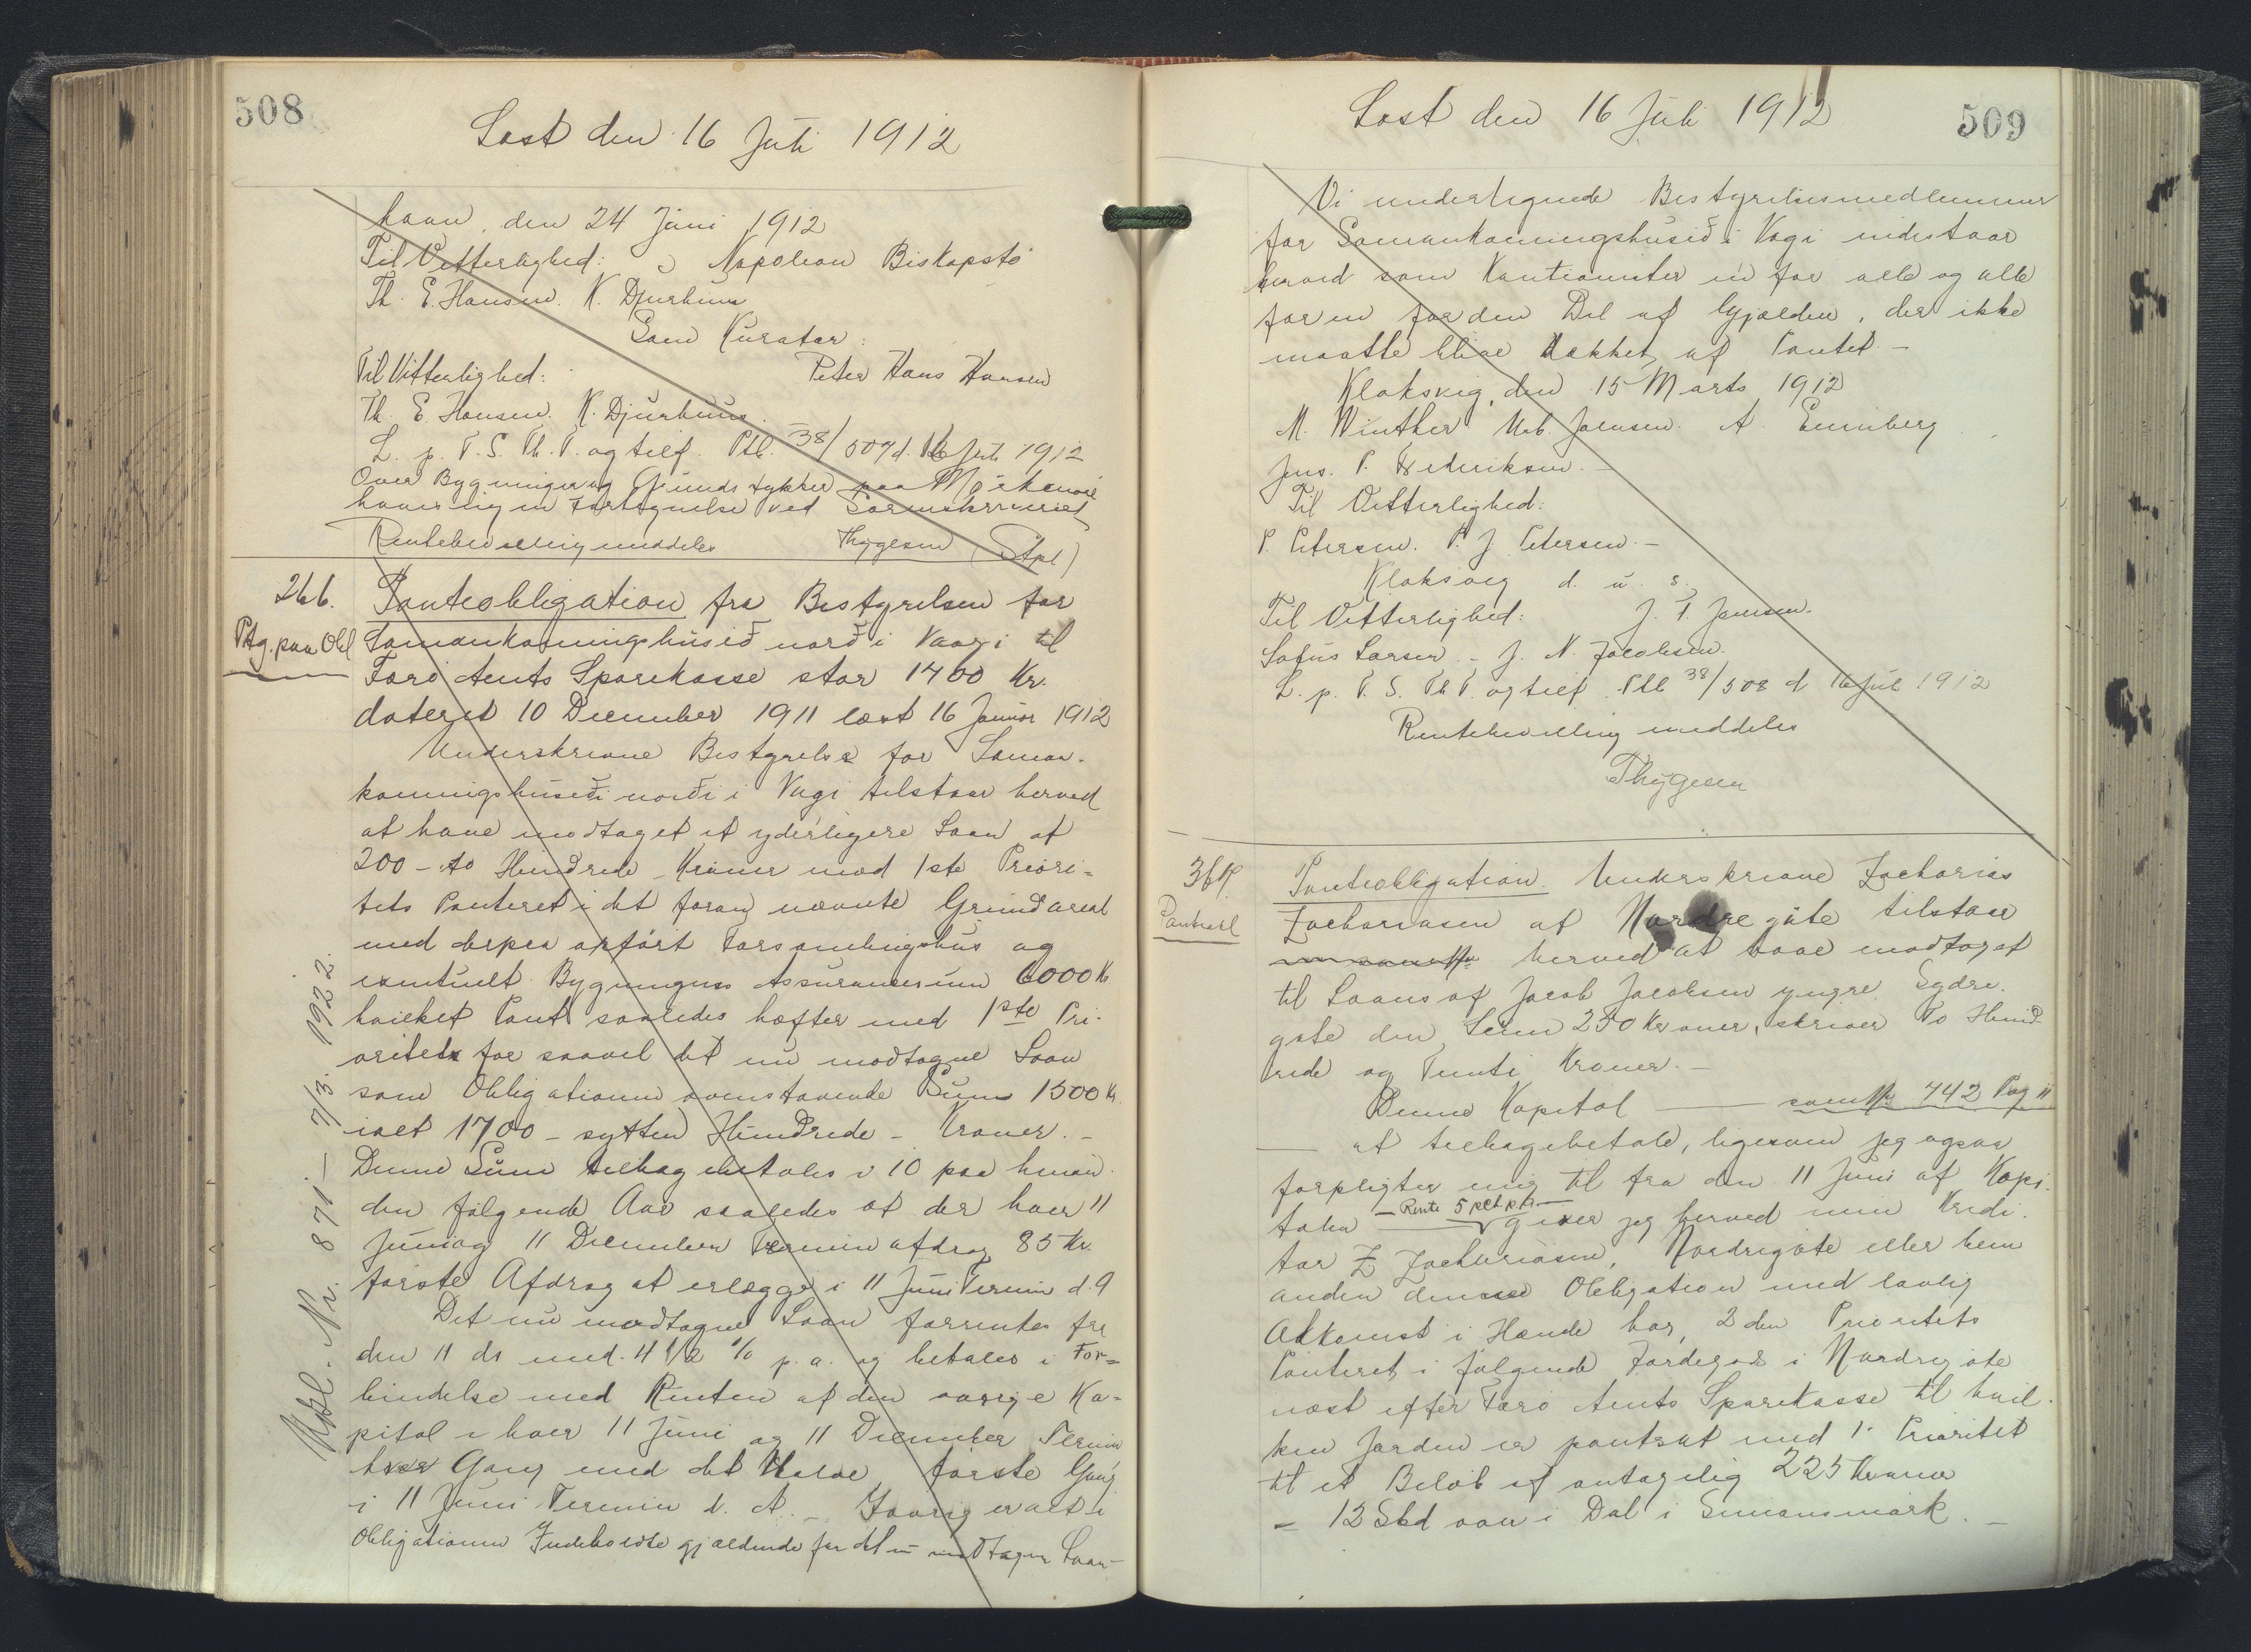 508
Læst den 16 Juli 1912
havn, den 24 Juni 1912
Til Vitterlighed: Napoleon Biskopstø
Th. E. Hansen. K. Djurhuus
Som Kurator:
Til Vitterlighed: Peter Hans Hansen
Th. E. Hansen. K. Djurhuus.
L. p. T. S. Th. P. og tilf. Ptb. 38/507 d. 16 Juli 1912
Over Bygninger og Grundstykker paa
haves ingen Fortegnelse ved Sorenskriveriet
Rentebevilling meddeles Thygesen (Ktpl)
266. Panteobligation fra Bestyrelsen for
Ptg. paa Obl Samankomingshúsið norði i Vaagi til
Færø Amts Sparekasse stor 1700 Kr.
dateret 10 December 1911 læst 16 Januar 1912
Underskrevne Bestyrelse for Saman-
komingshúsið norði i Vagi tilstaar herved
at have modtaget et yderligere Laan af
200 - to Hundrede - Kroner mod 1ste Priori-
tets Panteret i det foran nævnte Grundareal
med derpaa opført Forsamlingshus og
eventuelt Bygningens Assurancesum 6000 Kr
hvilket Pant saaledes hæfter med 1ste Pri-
oritet for saavel det nu modtagne Laan
som Obligationens ovenstaaende Sum 1500 Kr.
ialt 1700 - sytten Hundrede - Kroner. -
Denne Sum tilbagebetales i 10 paa hinan-
den følgende Aar saaledes at der hver 11
Juni og 11 December Termin afdrag 85 Kr.
første Afdrag at erlægge i 11 Juni Termin d. A
Det nu modtagne Laan forrentes fra
den 11 ds med 4 1/2 % p. a. og betales i For-
bindelse med Renten af den øvrige Ka-
pital i hver 11 Juni og 11 December Termin
hver Gang med det Halve første Gang
i 11 Juni Termin d. A. - Iøvrig er alt i
Obligationen Indeholdte gjældende for det nu modtagne Laan -
Udsl. Nr. 871 - 7/3. 1922.
Læst den 16 Juli 1912
509
Vi undertegnede Bestyrelsesmedlemmer
for Samankomingshúsið i Vagi indestaar
herved som Kautionister en for alle og alle
for en for den Del af Gjælden, der ikke
maatte blive dækket af Pantet. -
Klaksvig, den 15 Marts 1912
M. Winther Urb. Joensen. A. Eunberg
Jens. P. Frederiksen. -
Til Vitterlighed:
P. Petersen. P. J. Petersen. -
Klaksvig d. u. s.
Til Vitterlighed: J. F. Jensen.
Sofus Larsen. - J. N. Jacobsen.
L. p. T. S. Th. P. og tilf. Ptb 38/508 d 16 Juli 1912
Rentebevilling meddeles
Thygesen
367. Panteobligation. Underskrevne Zacharias
Panteobl Zachariasen af Nordregöte tilstaar
herved at have modtaget
til Laans af Jacob Jacobsen yngre Sydre-
gøte den Sum 250 Kroner, skriver To Hund-
rede og Femti Kroner. -
Denne Kapital — som No 742 Pag
— at tilbagebetale, ligesom jeg ogsaa
forpligter mig til fra den 11 Juni af Kapi-
talen — Rente 5 pct p. a. — giver jeg herved min Kredi-
tor Z Zachariasen, Nordregøte eller hvem
anden denne Obligation med lovlig
Adkomst i Hænde har, 2den Prioritets
Panteret i følgende Jordegods i Nordregøte
næst efter Færø Amts Sparekasse til hvil-
ken Jorden er pantsat med 1. Prioritet
til et Beløb af antagelig 225 Kroner
= 12 Skd i Dal i Simonsmørk. -